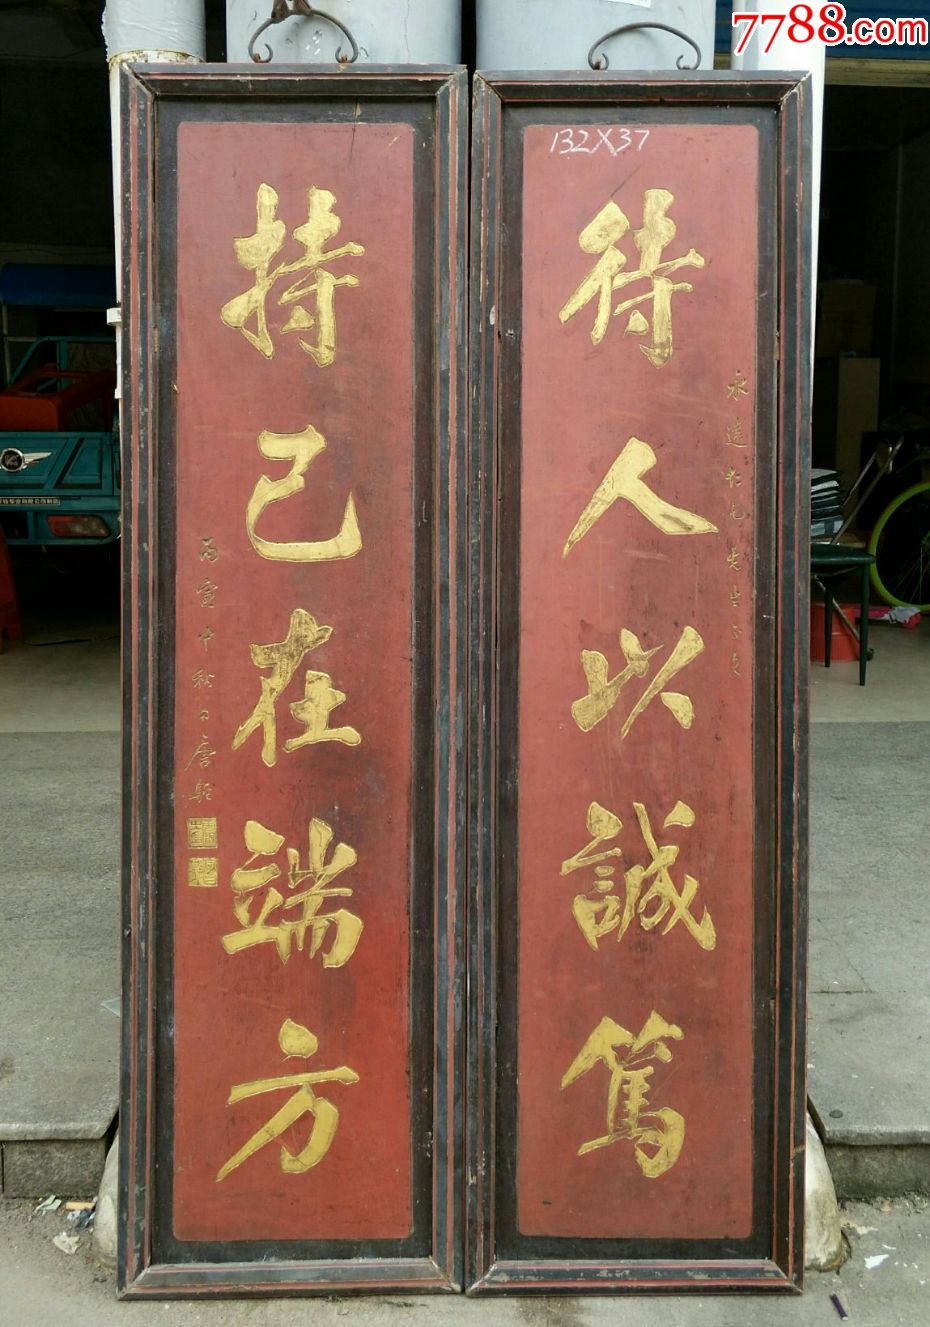 7788.com
132X37
待人以誠篤
持己在端方
丙寅中秋